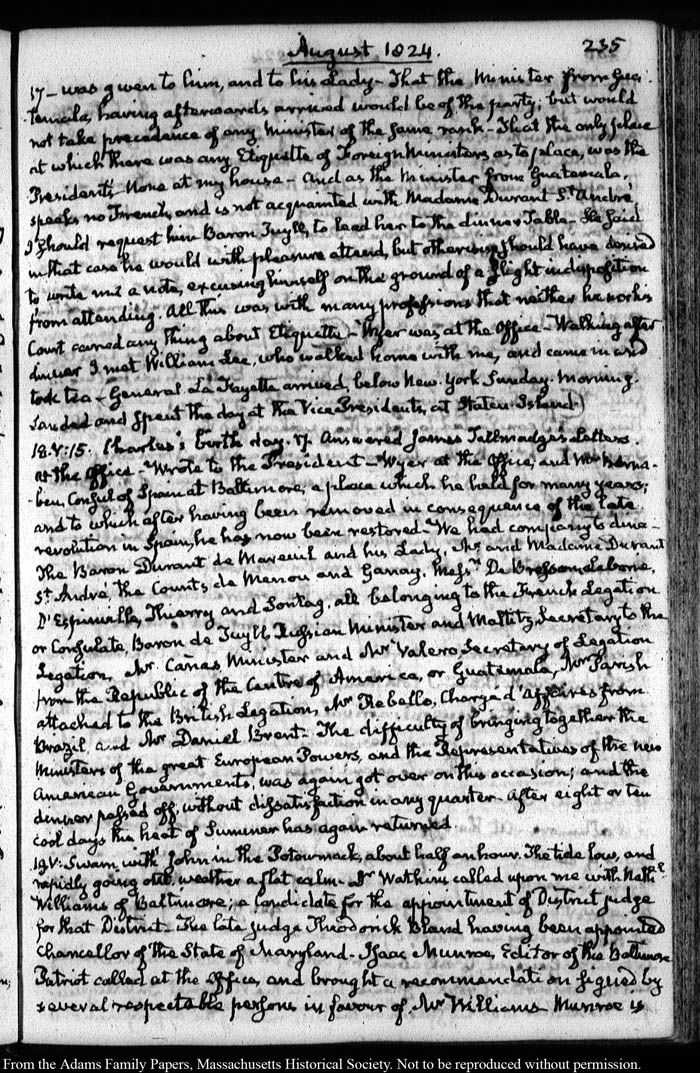 August 1824.
235
17 – was given to him, and to his Lady – That the Minister from Gua-
temala, having afterwards arrived would be of the party; but would
not take precedence of any Minister of the same rank – That the only place
at which there was any Etiquette of Foreign Ministers as to place, was the
Presidents – None at my house – And as the Minister from Guatemala,
speaks no French, and is not acquainted with Madame Durant St. André,
I should request him Baron Tuyll, to lead her to the dinner Table – He said
in that case he would with pleasure attend, but otherwise should have desired
to write me a note, excusing himself on the ground of a slight indisposition
from attending. All this was with many professions that neither he nor his
Court cared any thing about Etiquette – Wyer was at the Office – Walking after
dinner I met William Lee, who walked home with me, and came in and
took tea – General La Fayette arrived, below New-York Sunday Morning.
Landed and spent the day at the Vice Presidents, at Staten-Island)
18. V:15. Charles's birth day. 17. Answered James Tallmadge's Letters.
at the Office – Wrote to the President – Wyer at the Office, and Mr Berna-
beu, Consul of Spain at Baltimore, a place which he held for many years;
and to which after having been removed in consequence of the late
revolution in Spain, he has now been restored – We had company to dine –
The Baron Durant de Mareuil and his Lady, Mr and Madame Durant
St. André, the Counts de Menou and Ganay. Messrs. De Bresson, Laborie,
D'Espinville, Thierry and Sontag, all belonging to the French Legation
or Consulate, Baron de Tuyll, Russian Minister and Maltitz, Secretary to the
Legation, Mr. Cañas Minister and Mr Valero Secretary of Legation
from the Republic of the Centre of America, or Guatemala, Mr Parish
attached to the British Legation, Mr Rebello, Chargé d'Affaires from
Brazil and Mr Daniel Brent – The difficulty of bringing together the
Ministers of the great European Powers, and the Representatives of the new
American Governments, was again got over on this occasion; and the
dinner passed off, without dissatisfaction in any quarter – After eight or ten
cool days the heat of Summer has again returned
19. V: Swam with John in the Potowmack, about half an hour. The tide low, and
rapidly going out, weather a flat calm – Dr Watkins called upon me with Nathl.
Williams of Baltimore; a Candidate for the appointment of District judge
for that District – The late judge Theodorick Bland having been appointed
Chancellor of the State of Maryland – Isaac Munroe, Editor of the Baltimore
Patriot called at the Office, and brought a recommendation signed by
several respectable persons in favour of Mr Williams – Munroe is
From the Adams Family Papers, Massachusetts Historical Society. Not to be reproduced without permission.